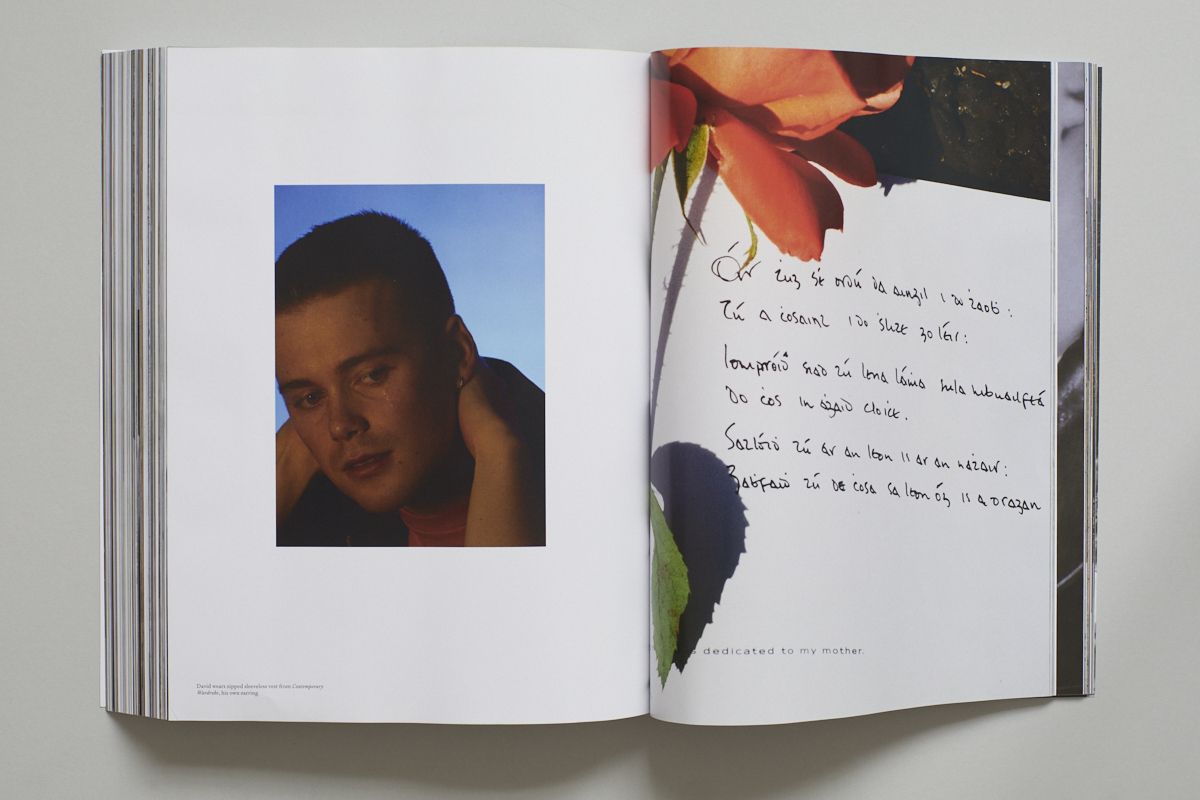 David wears zipped sleeveless vest from Contemporary
Wardrobe, his own earring.
Óir ṫug sé ordú dá aingil i do ṫaoḃ:
Tú a ċosaint i do ṡlite go léir:
Iompróiḋ siad tú lena láṁa sula mbuailfeá
Do ċos in aġaiḋ cloiċe.
Satlóiḋ tú ar an leon is ar an naṫair:
Gaḃfaiḋ tú de ċosa sa leon óg is a dragan
dedicated to my mother.